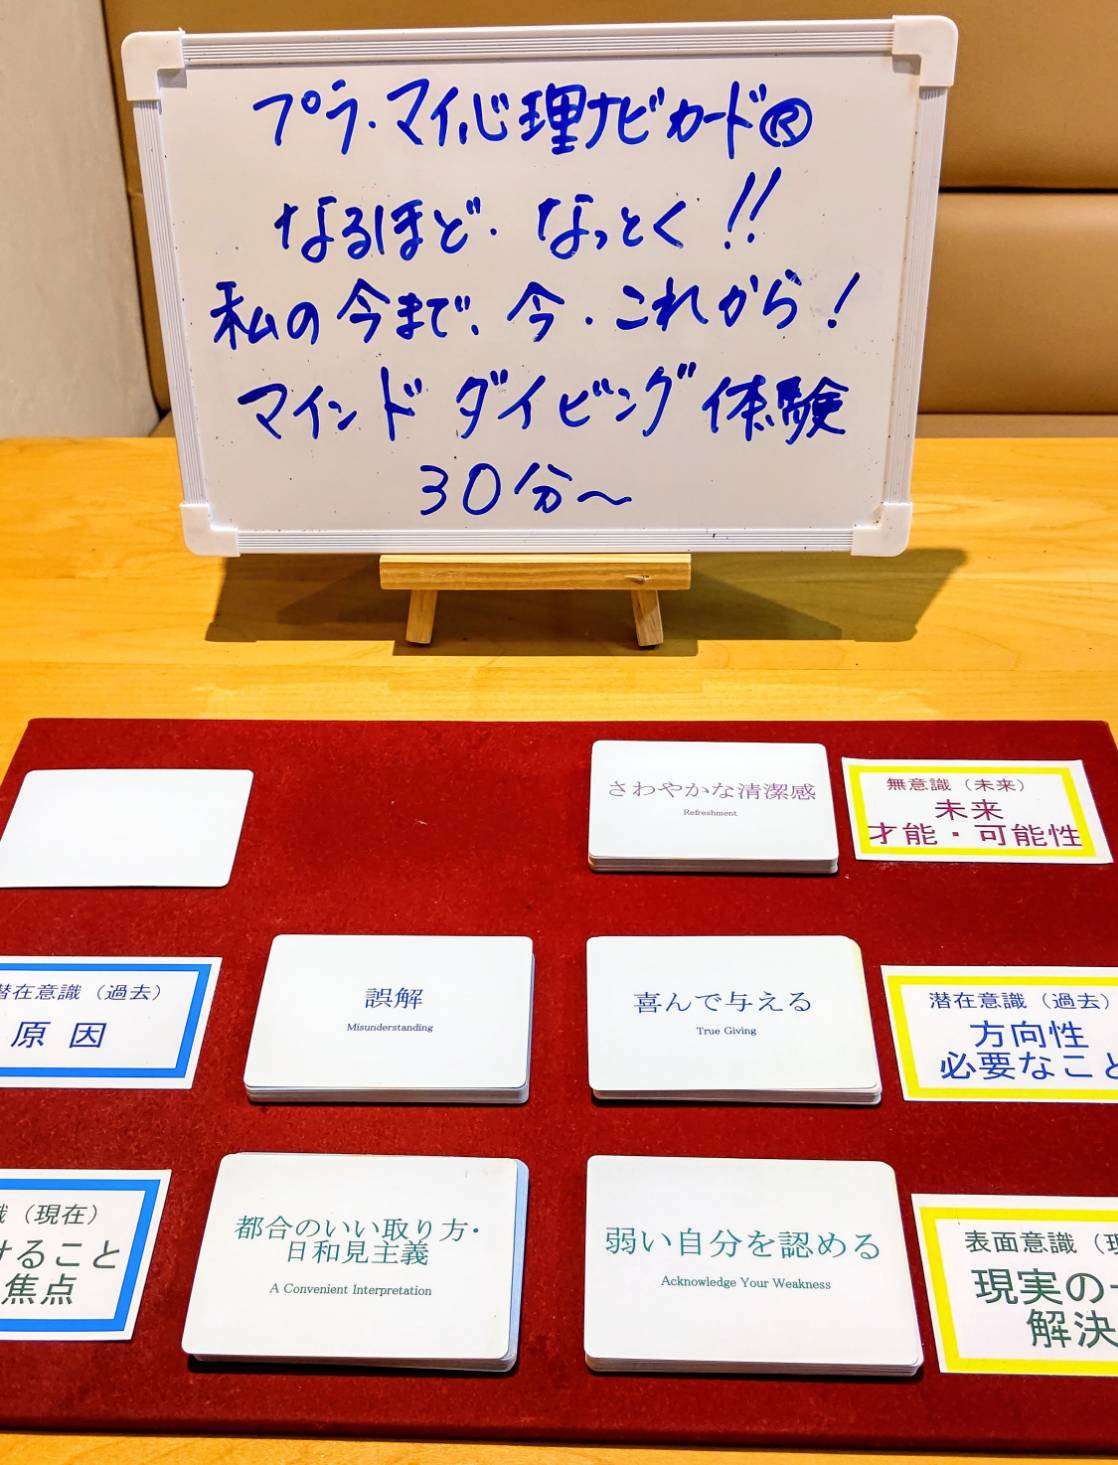 プラ・マイ心理ナビカード®
なるほど・なっとく!!
私の今まで、今・これから!
マインドダイビング体験
30分〜
さわやかな清潔感
Refreshment
無意識(未来)
未来
才能・可能性
潜在意識(過去)
原因
誤解
Misunderstanding
喜んで与える
True Giving
潜在意識(過去)
方向性
必要なこと
識(現在)
けること
焦点
都合のいい取り方・
日和見主義
A Convenient Interpretation
弱い自分を認める
Acknowledge Your Weakness
表面意識(現
現実の
解決